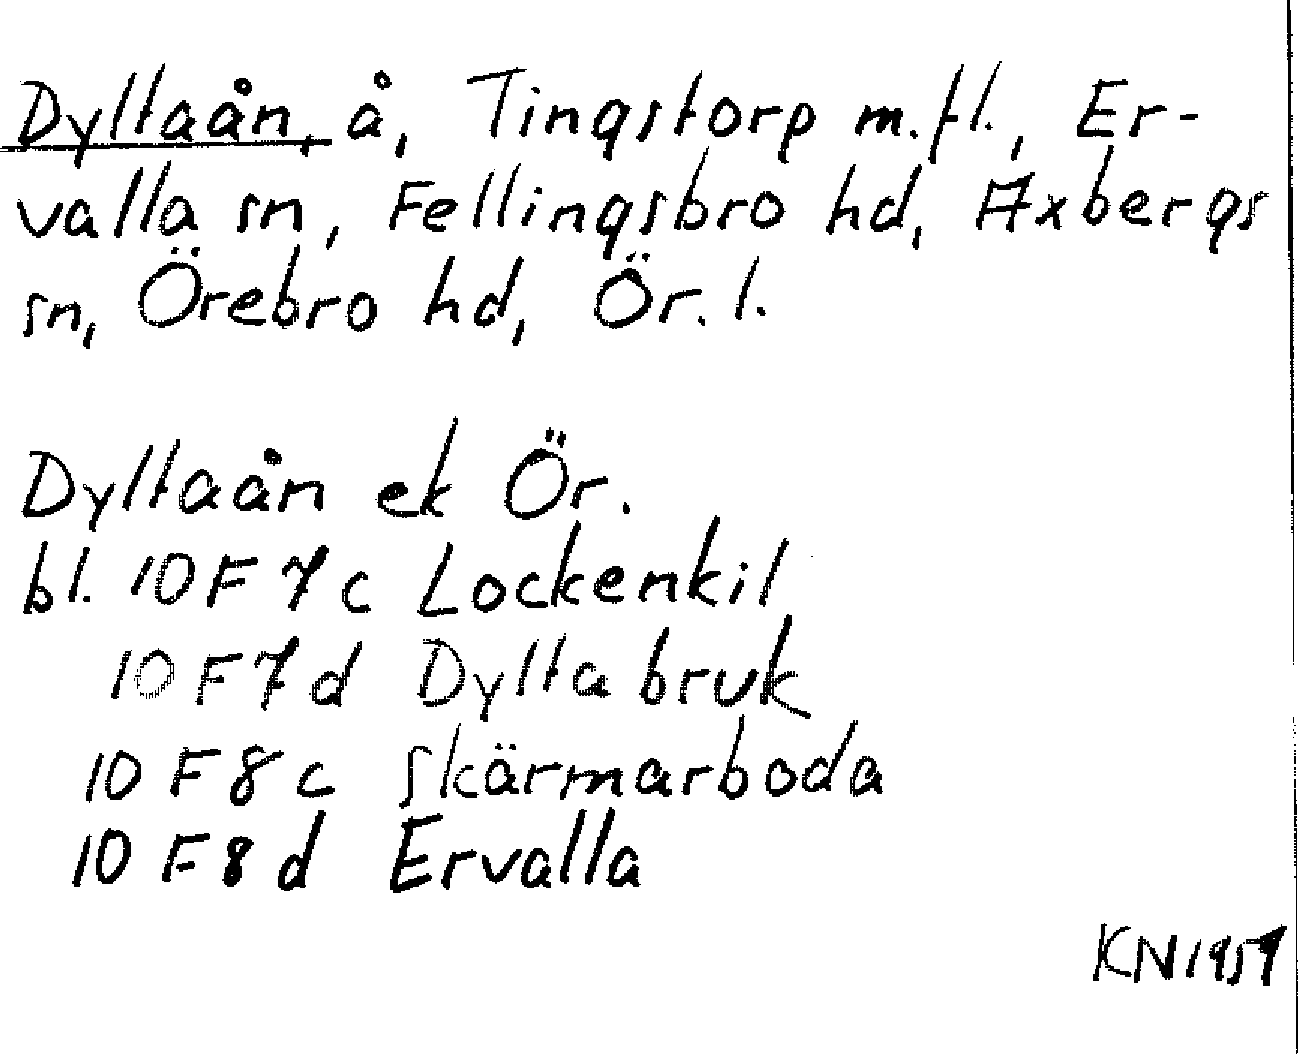 Dyltaån, å, Tingstorp m.fl., Er-
valla sn, Fellingsbro hd, Axbergs
sn, Örebro hd, Ör. l.
Dyltaån ek Ör.
bl. 10 F 7 c Lockenkil
10 F 7 d Dylta bruk
10 F 8 c Skärmarboda
10 F 8 d Ervalla
KN 1959